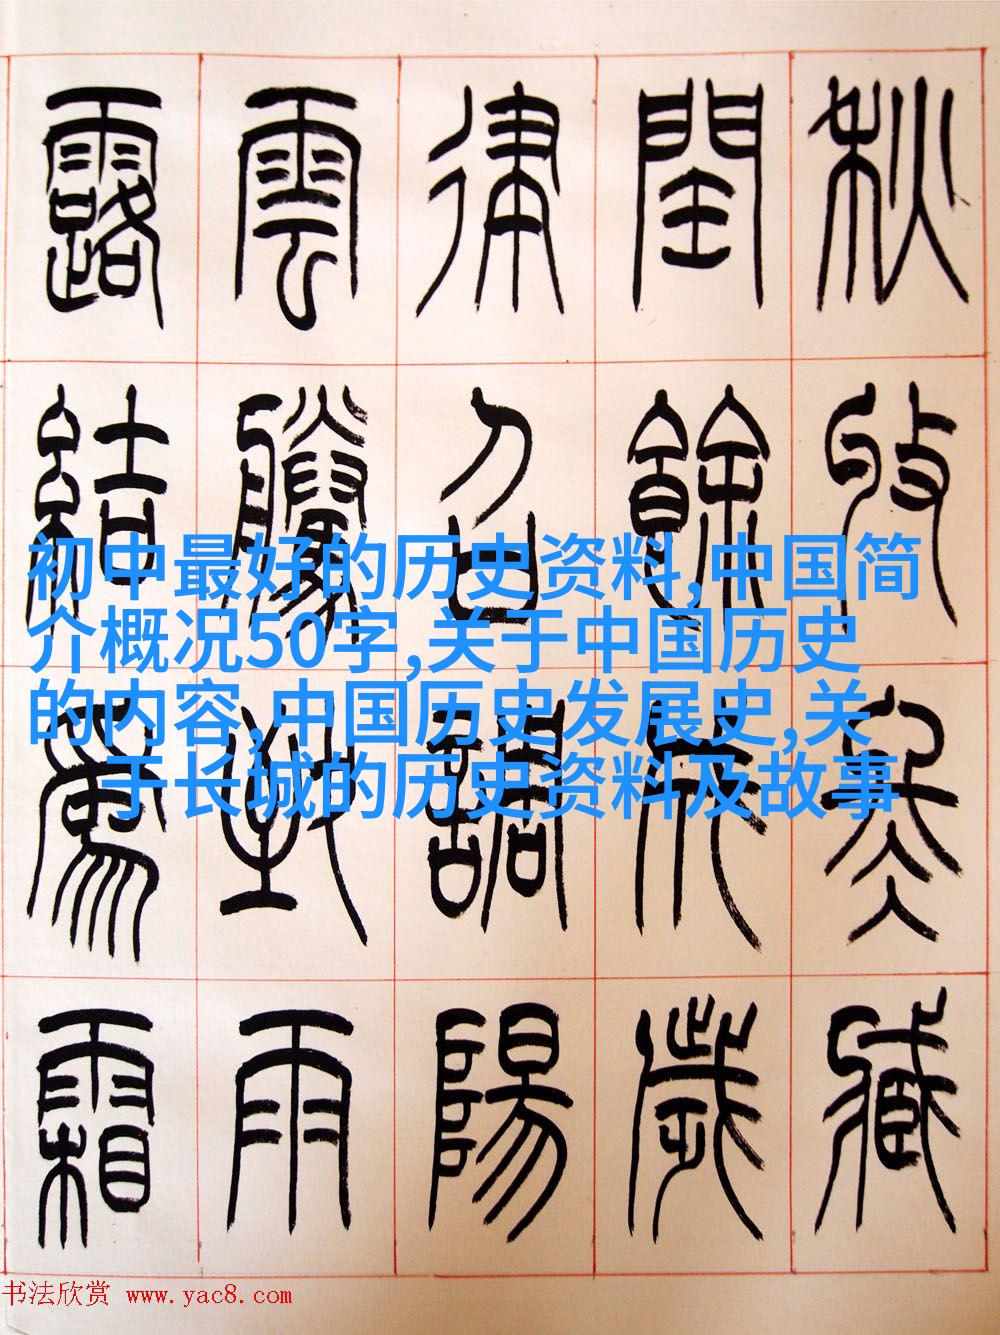 秋收冬藏
閏餘成歲
律召調陽
雲騰致雨
露結爲霜
初中最好的历史资料,中国简
介概况50字,关于中国历史
的内容,中国历史发展史,关
于长城的历史资料及故事
书法欣赏 www.yac8.com